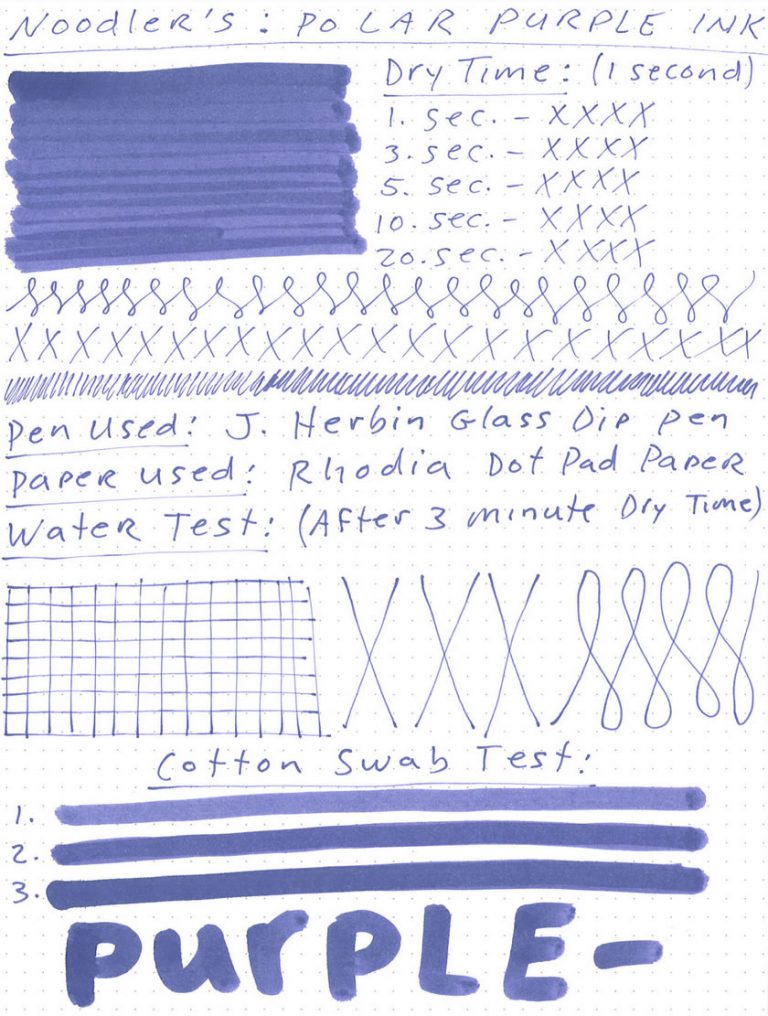 Noodler's: Polar Purple Ink
Dry Time: (1 second)
1. sec. - XXXX
3. sec. - XXXX
5. sec. - XXXX
10. sec. - XXXX
20. sec. - XXXX
X X X X X X X X X X X X X X X X X X X X X X X
Pen Used: J. Herbin Glass Dip Pen
Paper Used: Rhodia Dot Pad Paper
Water Test: (After 3 minute Dry Time)
X X X
Cotton Swab Test:
1.
2.
3.
PurPLE-